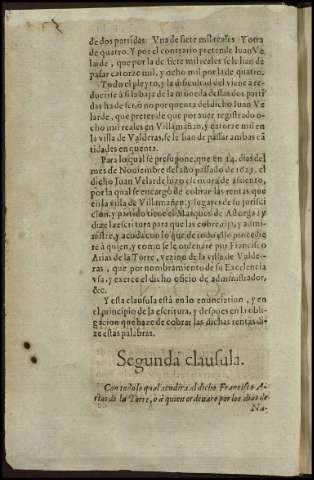 de dos partidas: Vna de siete mil reales. Y otra
de quatro. Y por el contrario pretende Iuan Ve
larde, que por la de siete mil reales se le han de
pasar catorze mil, y ocho mil por la de quatro.
Todo el pleyto, y la dificultad del viene a re-
ducirse à si la baxa de la moneda destas dos parti
das ha de ser, ò no por quenta del dicho Iuan Ve
larde, que pretende que por auer registrado o-
cho mil reales en Villamañan, y catorze mil en
la villa de Valderas, se le han de passar ambas cã
tidades en quenta.
Para lo qual se presupone, que en 14. dias del
mes de Nouiembre del año passado de 1627. el
dicho Iuan Velarde hizo escritura de assiento,
por la qual se encargò de cobrar las rentas que
en la villa de Villamañan, y lugares de su jurisdi
cion, y partido tiene el Marques de Astorga: y
dize la escritura para que las cobre, aya, y admi-
nistre, y acuda con lo que de todo ello procedie
re à quien, y como se le ordenare por Francisco
Arias de la Torre, vezino de la villa de Valde-
ras, que por nombramiento de su Excelencia
vsa, y exerce el dicho oficio de administrador,
&c.
Y esta clausula està en lo enunciatiuo, y en
el principio de la escritura, y despues en la obli-
gacion que haze de cobrar las dichas rentas di-
ze estas palabras.
Segunda clausula.
Con todo lo qual acudira al dicho Francisco A-
rias de la Torre, ò à quien ordenare por los dias de
Na-